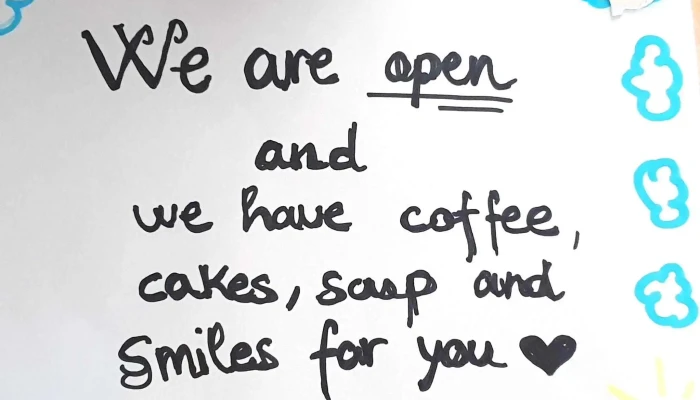 We are open
and
we have coffee,
cakes, soup and
smiles for you ♥